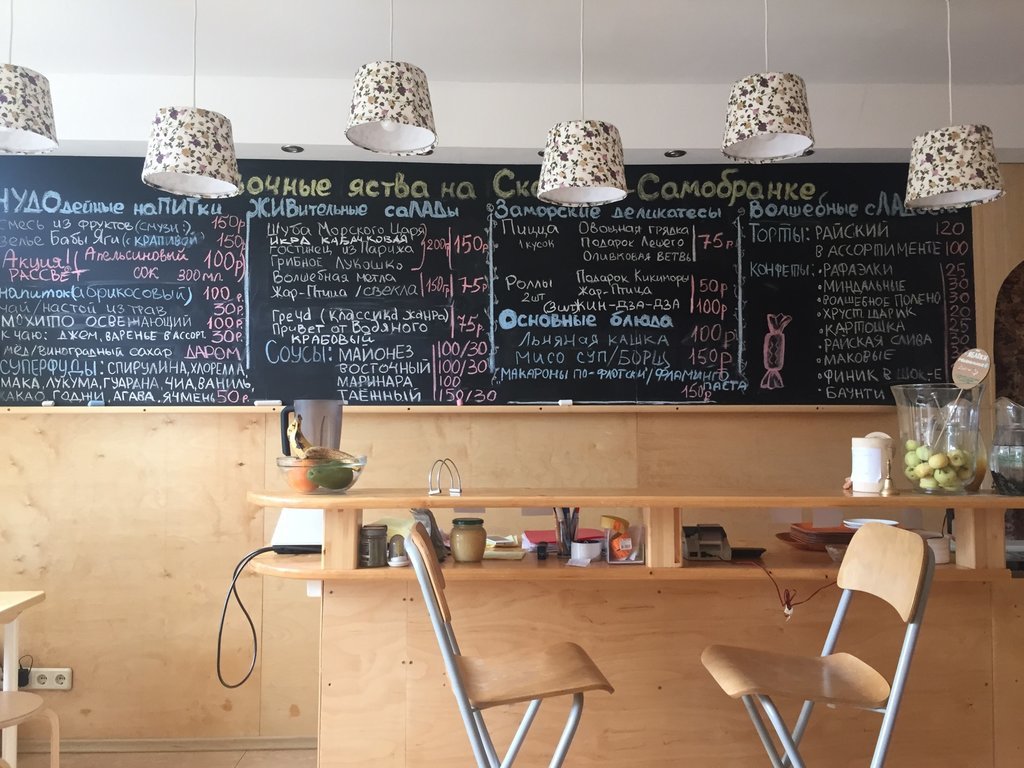 очные яства на Ск -Самобранке
ЧУДОдейные наПИТки
смесь из фруктов (смузи:) 150р
зелье Бабы Яги (с крапивой) 150
Акция! Апельсиновый 100р
РАССВЕТ СОК 300 мл.
напиток (абрикосовый) 100р.
чай/настой из трав 30р.
Мохито освежающий 100р
к чаю: джем, варенье в ассорт. 30р.
мёд/виноградный сахар ДАРОМ
СУПЕРФУДЫ: СПИРУЛИНА, ХЛОРЕЛЛА
МАКА, ЛУКУМА, ГУАРАНА, ЧИА, ВАНИЛЬ,
КАКАО, ГОДЖИ, АГАВА, ЯЧМЕНЬ 50р.
ЖИВительные саЛАДы
Шуба Морского Царя
Икра кабачковая
гостинец из Парижа 200гр 150р.
Грибное Лукошко
Волшебная метла 150гр 75р.
Жар-Птица /свекла
Гречa (классика жанра)
Привет от Водяного 75р.
крабовый
Соусы: майонез 100/30
восточный 100/30
маринара 100
таённый 150/30
Заморские деликатесы
Пицца Овощная грядка
1 кусок Подарок Лешего 75р.
Оливковая ветвь
Роллы Подарок Кикиморы 50р
2шт Жар-Птица 100р.
Джин-дза-дза
Основные блюда
Льняная кашка 100р
Мисо суп/борщ 150р
Макароны по-флотски/фламинго
паста
150р
Волшебные сЛАДости
Торты: райский 120
в ассортименте 100
конфеты: • рафаэлки 25
• миндальные 30
• волшебное полено 30
• хруст шарик
• картошка
• райская слива
• маковые
• финик в шок-е
• баунти